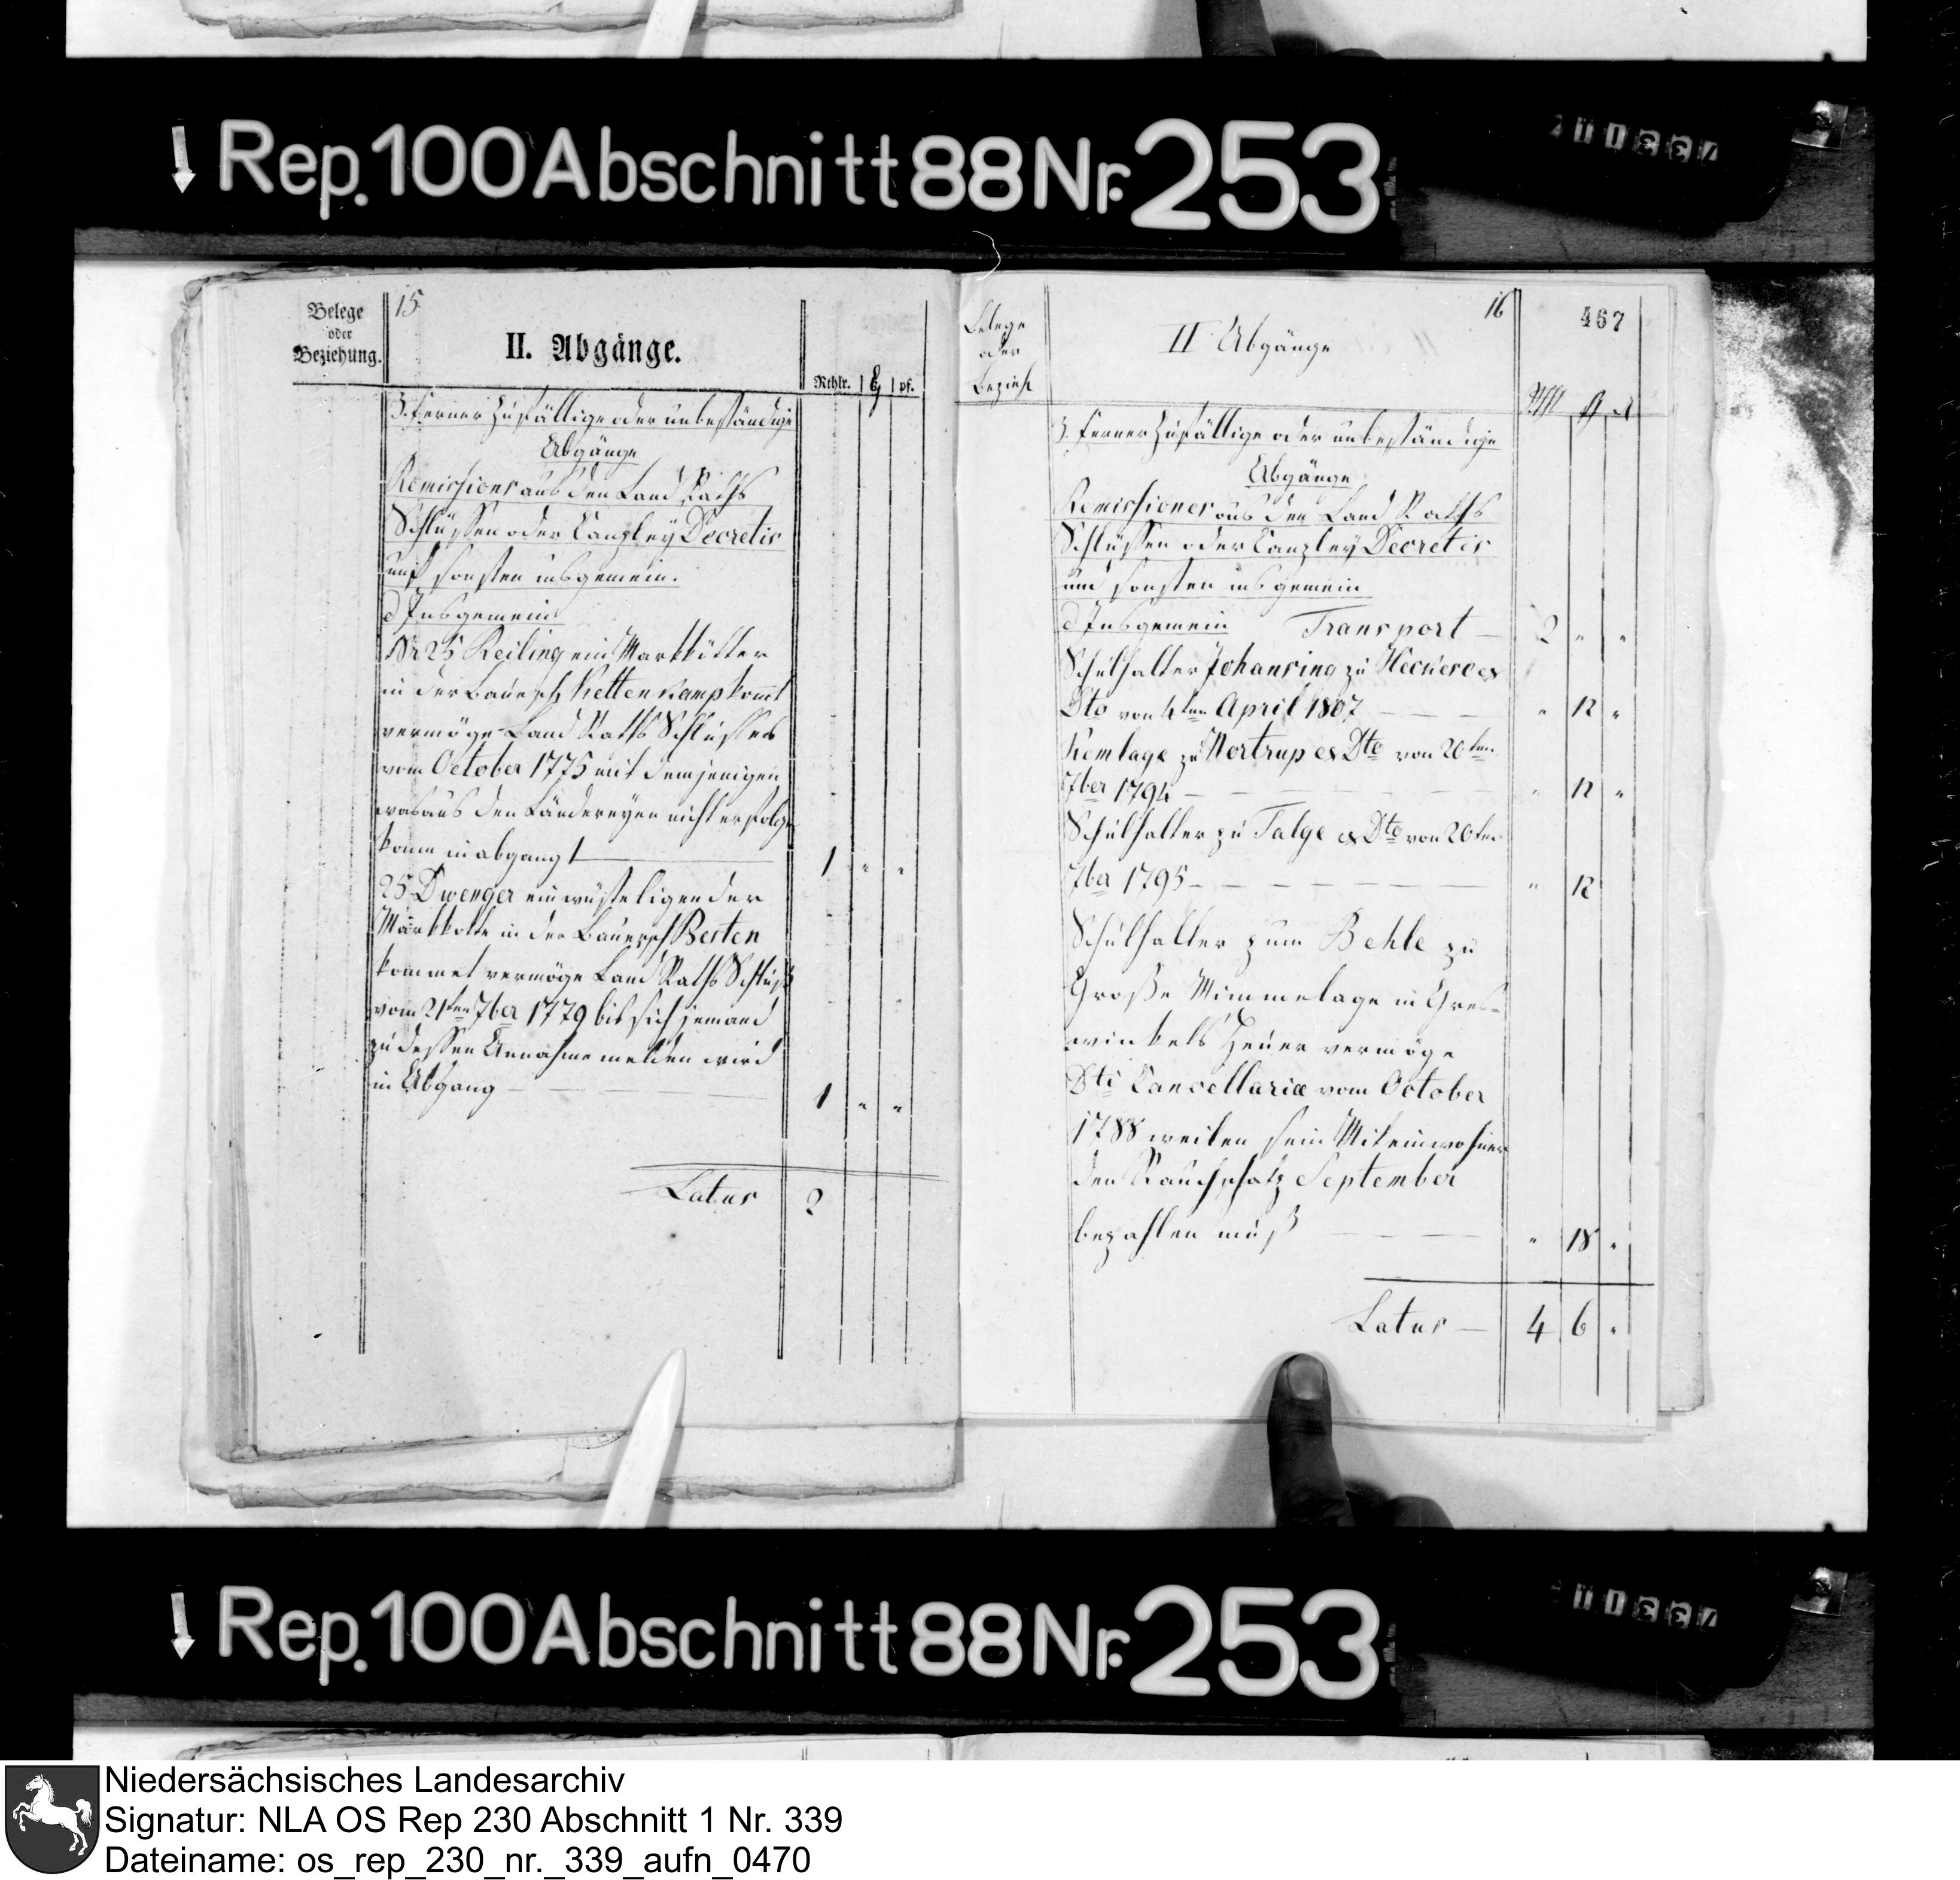 Rep. 100 Abschnitt 88 Nr. 253
Belege
oder
Beziehung.
15
II. Abgänge.
Rthlr. ß pf.
3. ferner Zufällige oder unbeständige
Abgänge
Remissiones aus den Land Raths
Schlüssen oder Canzley Decretis
und sonsten insgemein.
d Insgemein
Nr 25 Reiling ein Markkötter
in der Bauersch Kettenkamp komt
vermöge Land Raths Schlusses
vom October 1775 mit demjenigen
was aus den Ländereyen nicht erfolgen
könne in abgang 1 " "
25 Dwenger ein wüste liegender
Markkotte in der Bauersch Berten
kommet vermöge Land Raths Schluß
vom 21ten 7ber 1779 bis sich jemand
zu dessen Annahme melden wird
in Abgang — 1 " "
Latus 2
Belege
oder
Bezieh
II Abgänge
16
467
3. ferner Zufällige oder unbeständige
Abgänge
Remissiones aus den Land Raths
Schlüssen oder Canzley Decretis
und sonsten insgemein
d Insgemein Transport — 2 " "
Schulhalter Johanring zu ex
Dto von 4ten April 1807 — " 12 "
Kemlage zu Nortrup ex Dto von 20ten
7ber 1794 — " 12 "
Schulhalter zu Talge ex Dto von 20ten
7ber 1795 — " 12
Schulhalter zum Behle zu
Große Mimmelage in Gres-
winkels Heuer vermöge
Dti Cancellariæ vom October
1788 weilen sein Miteinwohner
den Rauchschatz September
bezahlen muß — " 18 "
Latus — 4 6 "
Rep. 100 Abschnitt 88 Nr. 253
Niedersächsisches Landesarchiv
Signatur: NLA OS Rep 230 Abschnitt 1 Nr. 339
Dateiname: os_rep_230_nr._339_aufn_0470